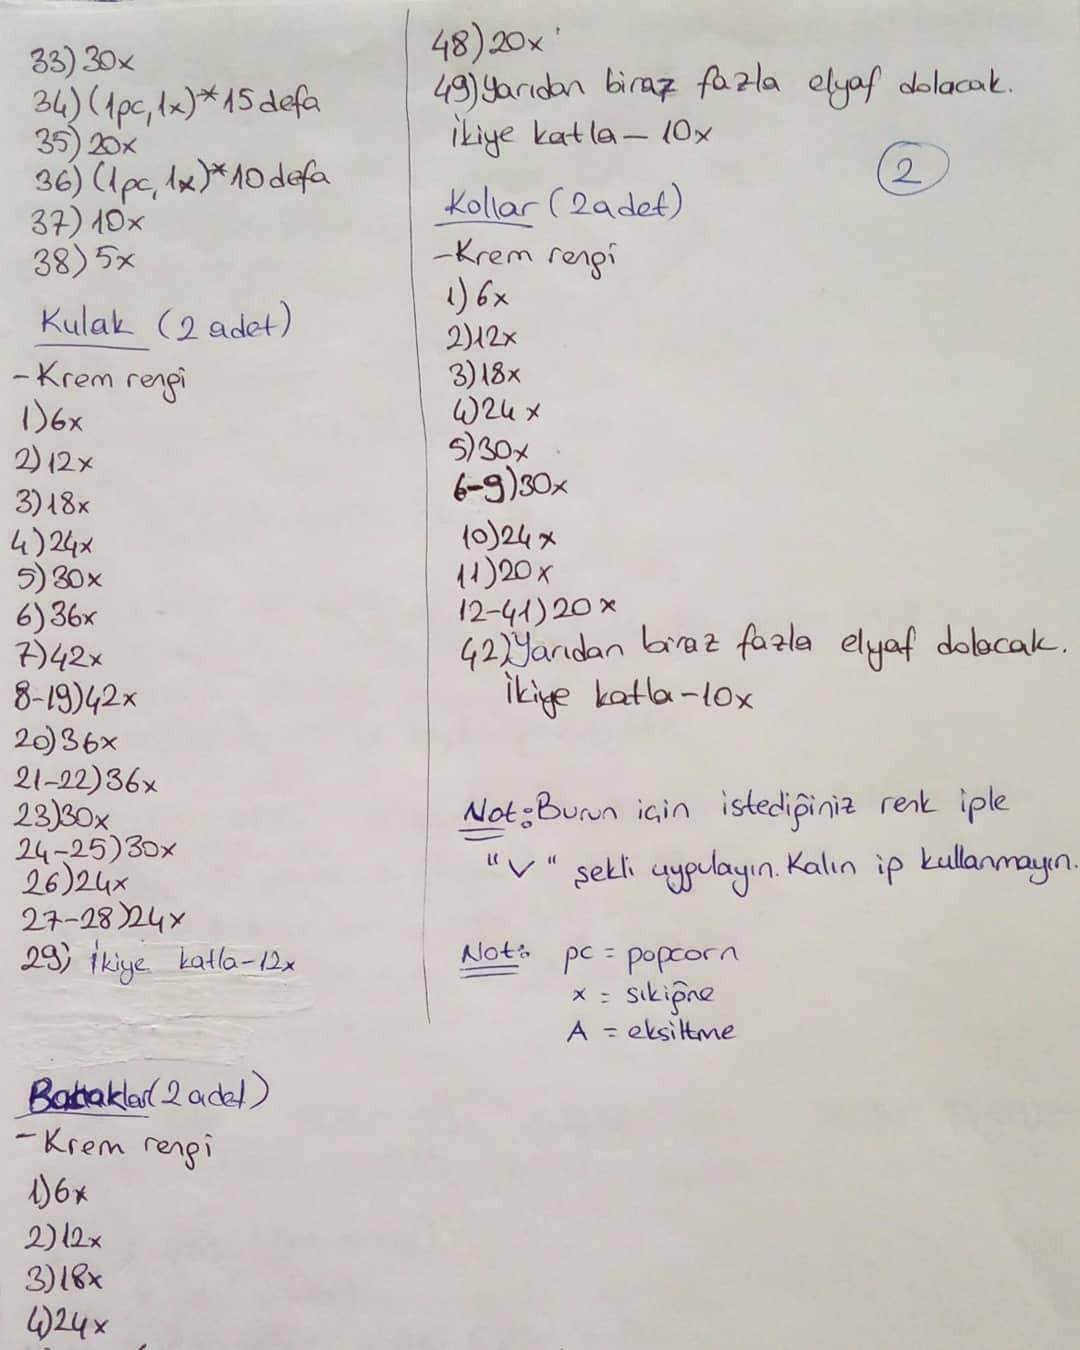 33) 30x
34) (1pc, 1x)*15 defa
35) 20x
36) (1pc, 1x)*10 defa
37) 10x
38) 5x
Kulak (2 adet)
- Krem rengi
1) 6x
2) 12x
3) 18x
4) 24x
5) 30x
6) 36x
7) 42x
8-19) 42x
20) 36x
21-22) 36x
23) 30x
24-25) 30x
26) 24x
27-28) 24x
29) İkiye katla-12x
Bacaklar (2 adet)
- Krem rengi
1) 6x
2) 12x
3) 18x
4) 24x
48) 20x
49) Yarıdan biraz fazla elyaf dolacak.
İkiye katla - 10x
2
Kollar (2 adet)
- Krem rengi
1) 6x
2) 12x
3) 18x
4) 24x
5) 30x
6-9) 30x
10) 24x
11) 20x
12-41) 20x
42) Yarıdan biraz fazla elyaf dolacak.
İkiye katla-10x
Not: Burun için istediğiniz renk iple
"V" şekli uygulayın. Kalın ip kullanmayın.
Not: pc = popcorn
x = sıkiğne
A = eksiltme